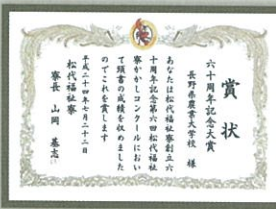 賞状
六十周年記念大賞
長野県農業大学校 様
あなたは松代福祉寮創立六
十周年記念第六回松代福祉
寮かかしコンクールにおい
て頭書の成績を収めました
のでこれを賞します
平成二十四年七月二十二日
松代福祉寮
寮長 山岡 基志